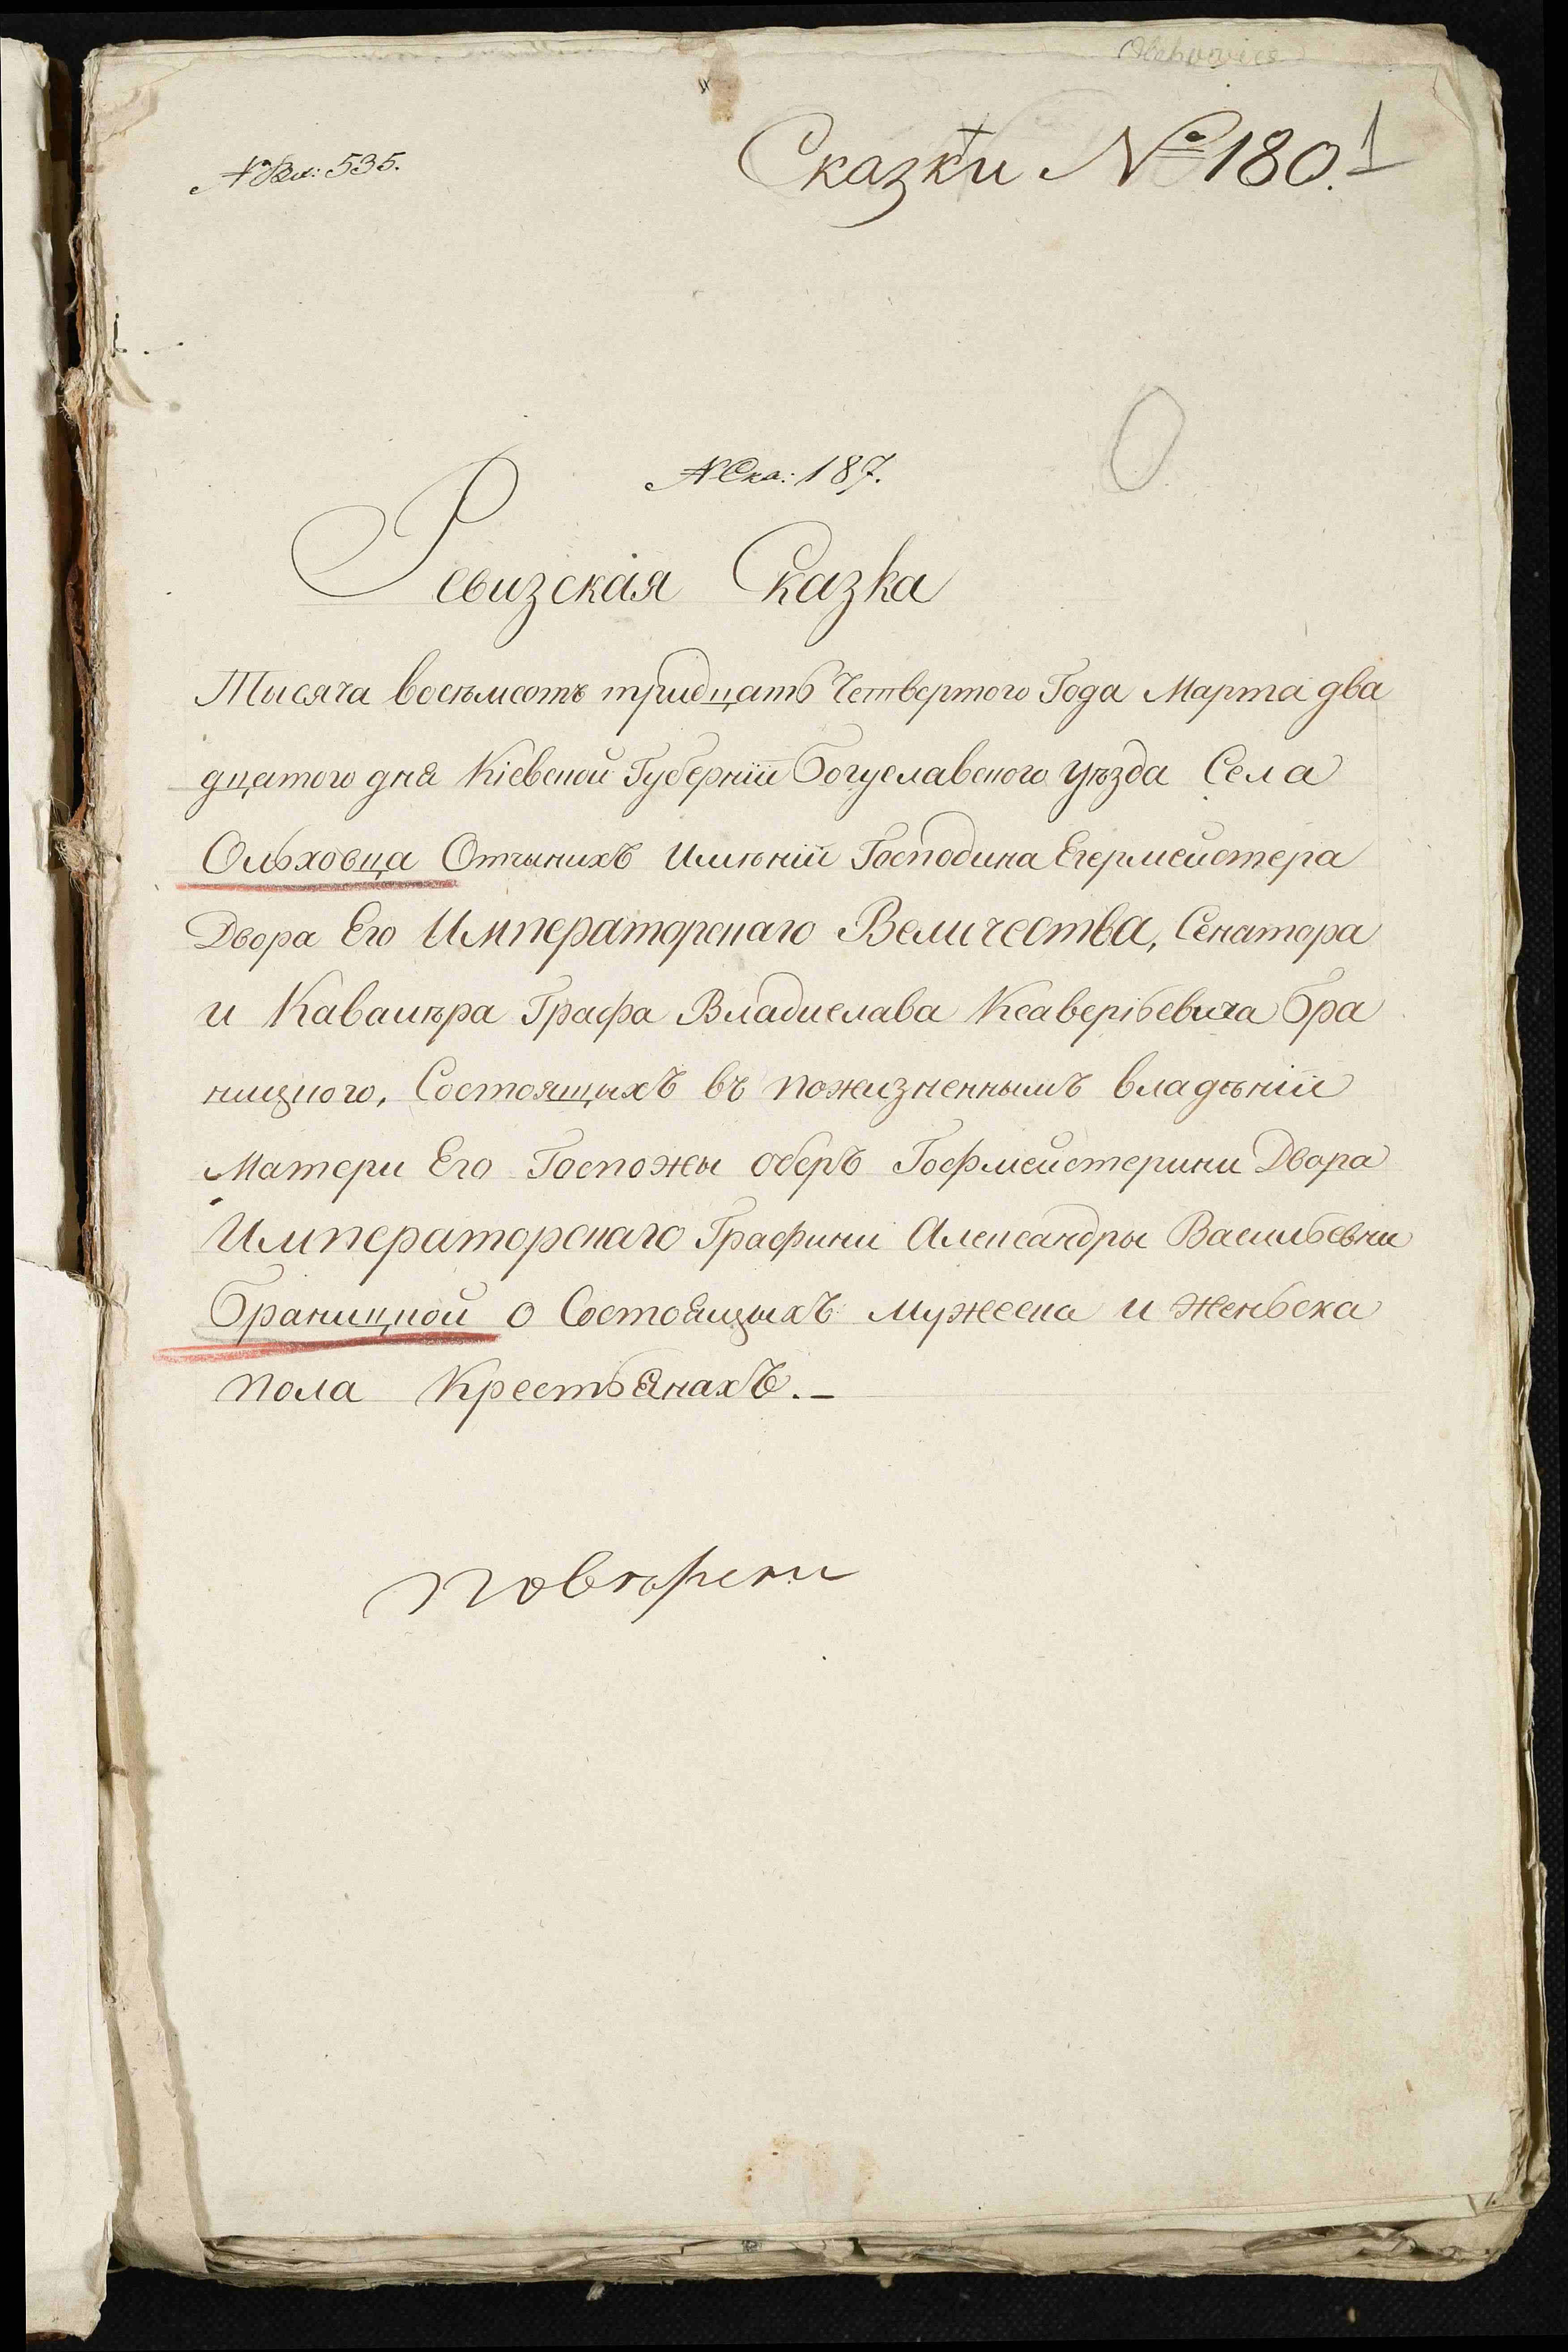 Сказки № 180. 1
№ Вх: 535.
№ Ска: 187.
Ревизская Сказка
Тысяча восѣмсотъ тридцать Четвертого Года Марта два
дцатого дня Кіевской Губерніи Богуславского уѣзда Села
Ольховца Отчыныхъ Имѣній Господина Егермейстера
Двора Его Императорскаго Величества, Сенатора
и Кавалѣра Графа Владислава Ксаверіьевича Бра
ницкого, Состоящыхъ въ пожизненнымъ владѣніи
Матери Его Госпожы оберъ Гофмейстерини Двора
Императорскаго Графини Александры Васильевни
Браницкой о Состоящыхъ мужеска и женьска
пола Крестьянахъ.—
повѣрени